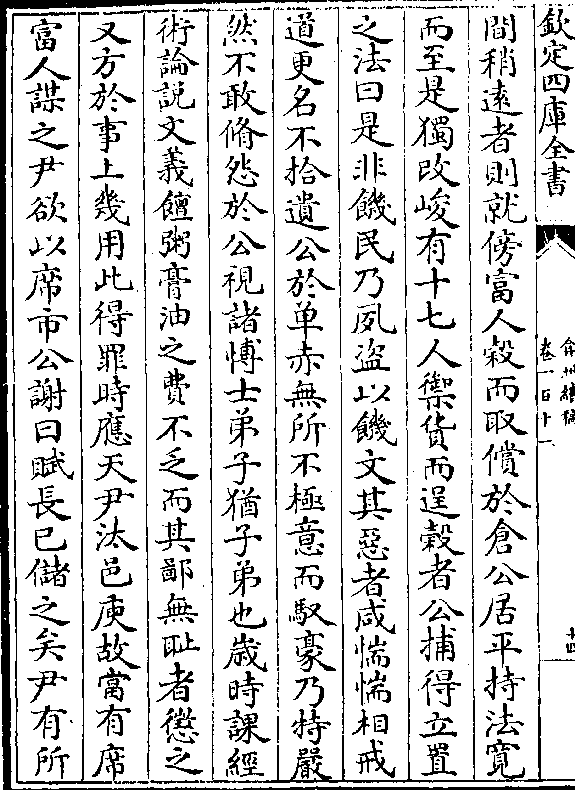 欽定四庫全書
弇州續稿
卷一百十一
十四
間稍遠者則就傍富人穀而取償於倉公居平持法寛
而至是獨改峻有十七人禦貨而逞穀者公捕得立置
之法曰是非饑民乃夙盜以饑文其惡者咸惴惴相戒
道更名不拾遺公於单赤無所不極意而馭豪乃特嚴
然不敢脩怨於公視諸博士弟子猶子弟也歳時課經
術論説文義饘粥膏油之費不乏而其鄙無耻者懲之
又方於事上幾用此得罪時應天尹汰邑庾故當有席
富人謀之尹欲以席市公謝曰賦長已儲之矣尹有所